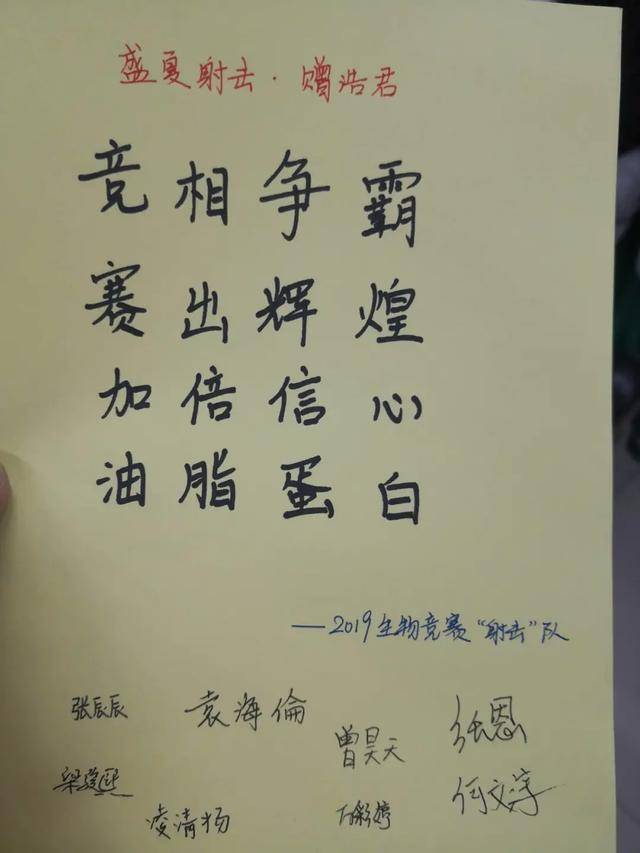 盛夏射击·赠浩君
竞相争霸
赛出辉煌
加倍信心
油脂蛋白
——2019生物竞赛“射击”队
张辰辰 袁海倫 曾昊天 张恩
梁骏熙 凌清扬 何文宇